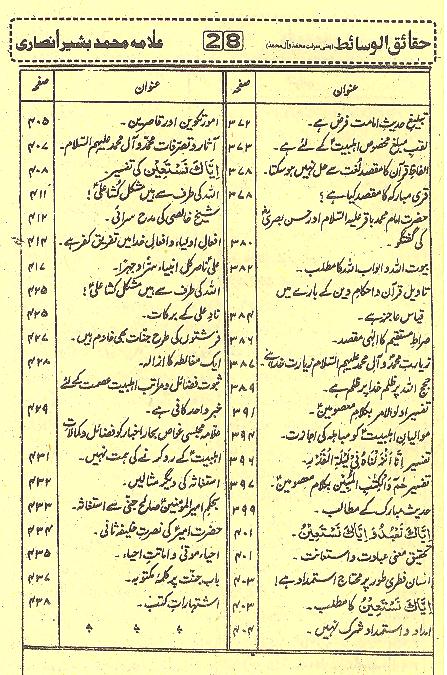 حقائق الوسائط (یعنی معرفت محمد و آل محمد) 28 علامہ محمد بشیر انصاری
عنوان صفحہ
تبلیغ حدیث امامت فرض ہے۔ ۳۷۲
لقب مبلغ مخصوص اہلبیتؑ کے لئے ہے۔ ۳۷۳
الفاظ قرآن کا مقصد لُغت سے حل نہیں ہو سکتا۔ ۳۷۸
قری مبارکہ کا مقصد کیا ہے؟ ۳۷۸
حضرت امام محمد باقر علیہ السلام اور حسن بصری
کی گفتگو۔ ۳۸۰
بیوت اللہ و ابواب اللہ کا مطلب۔ ۳۸۲
تاویل قرآن و احکام دین کے بارے میں
قیاس عاجز ہے۔ ۳۸۴
صراط مستقیم کا الٰہی مقصد۔ ۳۸۶
زیارت محمدؐ و آل محمد علیہم السلام زیارت خدا ہے۔ ۳۸۷
حجج اللہ پر ظلم خدا پر ظلم ہے۔ ۳۸۹
تفسیر اولوالامر بکلام معصومینؑ۔ ۳۹۱
موالیان اہلبیتؑ کو مباہلہ کی اجازت۔ ۳۹۴
تفسیر اِنَّا اَنْزَلْنَاهُ فِیْ لَیْلَةِ الْقَدْرِ۔ ۳۹۶
تفسیر حٰمٓ وَالْکِتٰبِ الْمُبِیْنِ بکلام معصومینؑ۔ ۳۹۷
حدیث مبارک کے مطالب۔ ۳۹۹
اِیَّاكَ نَعْبُدُ وَ اِیَّاكَ نَسْتَعِیْنُ۔ ۴۰۱
تحقیق معنی عبادت و استعانت۔ ۴۰۱
انسان فطری طور پر محتاج استمداد ہے! ۴۰۳
اِیَّاكَ نَسْتَعِیْنُ کا مطلب۔ ۴۰۳
امداد و استمداد شرک نہیں۔ ۴۰۴
عنوان صفحہ
امور تکوین اور قاصرین۔ ۴۰۵
آثار و تصرفات محمدؐ و آل محمد علیہم السلام۔ ۴۰۷
اِیَّاكَ نَسْتَعِیْنُ کی تفسیر ۴۰۸
اللہ کی طرف سے ہیں مشکل کشا علیؑ! ۴۱۱
شیخ خالصی کی مدح سرائی۔ ۴۱۲
افعال اولیاء و افعال خدا میں تفریق کفر ہے۔ ۴۱۴
علیؑ ناصر کل انبیاء سرًّا و جہرًا۔ ۴۱۷
اللہ کی طرف سے ہیں مشکل کشا علیؑ! ۴۲۵
ناد علی کے برکات۔ ۴۲۵
فرشتوں کی طرح جنات بھی خادم ہیں۔ ۴۲۷
ایک مغالطہ کا ازالہ۔ ۴۲۸
ثبوت فضائل و مراتب اہلبیت عصمت کے لئے
خبر واحد کافی ہے۔ ۴۲۹
علامہ مجلسی غواص بحار اخبار کو فضائل و کمالات
اہلبیتؑ کے رد کرنے کی ہمت نہیں۔ ۴۳۱
استغاثہ کی دیگر مثالیں۔ ۴۳۲
بحکم امیرالمومنینؑ صالح جنی سے استغاثہ۔ ۴۳۳
حضرت امیرؑ کی نصرت خلیفہ ثانی۔ ۴۳۴
احیاء موتٰی و اماتت احیاء۔ ۴۳۵
باب جنت پر کلمہ مکتوبہ۔ ۴۳۷
اشتہارات کتب۔ ۴۳۸